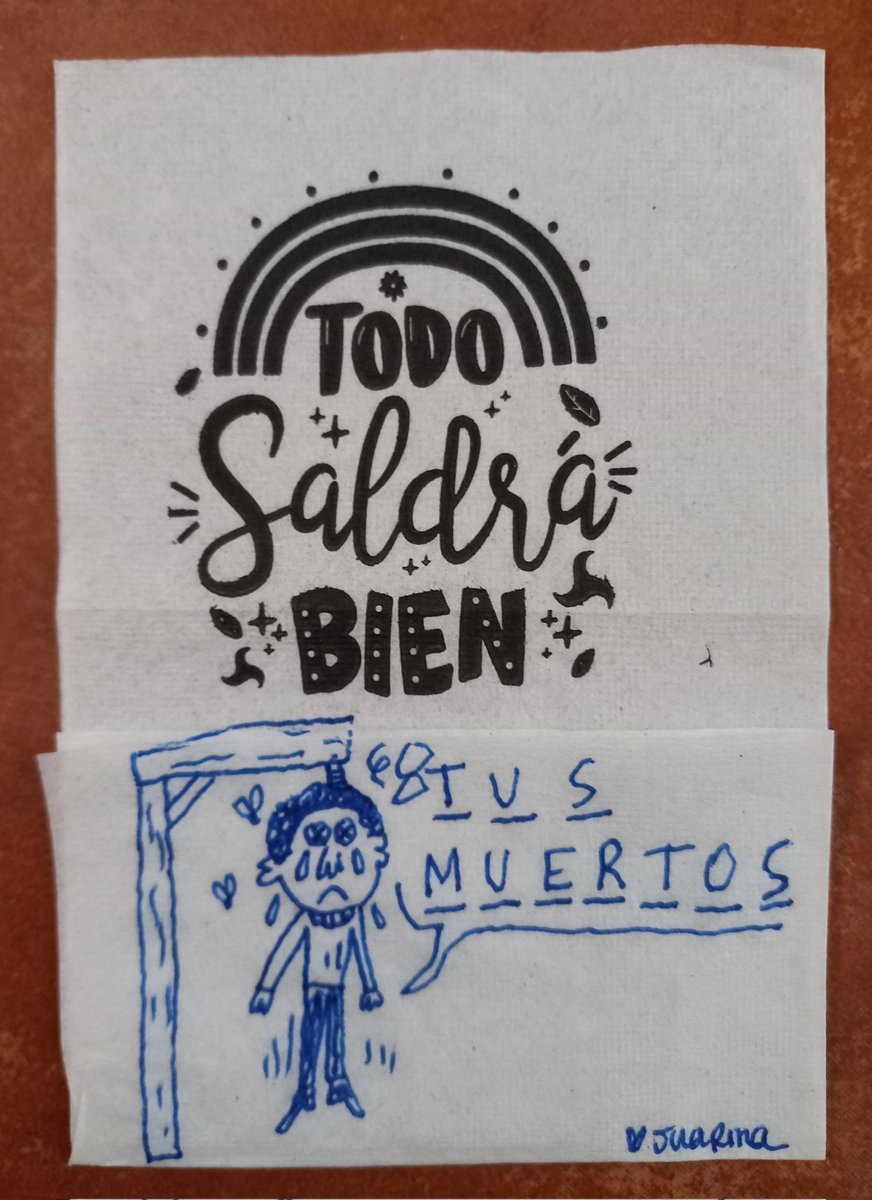 TODO
Saldrá
BIEN
TUS
MUERTOS
JUARMA